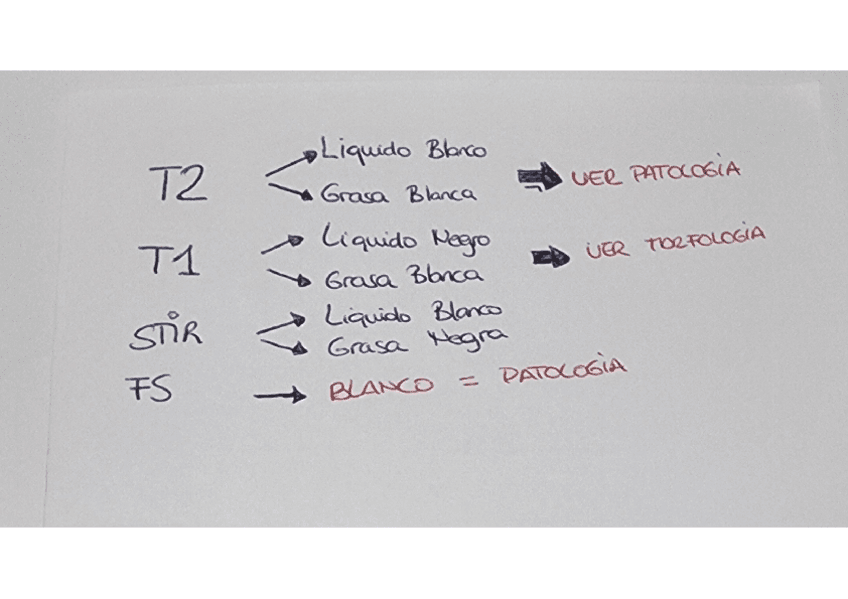 T2 → Liquido Blanco → VER PATOLOGÍA
→ Grasa Blanca
T1 → Liquido Negro → VER MORFOLOGÍA
→ Grasa Blanca
STIR → Liquido Blanco
→ Grasa Negra
FS → BLANCO = PATOLOGÍA